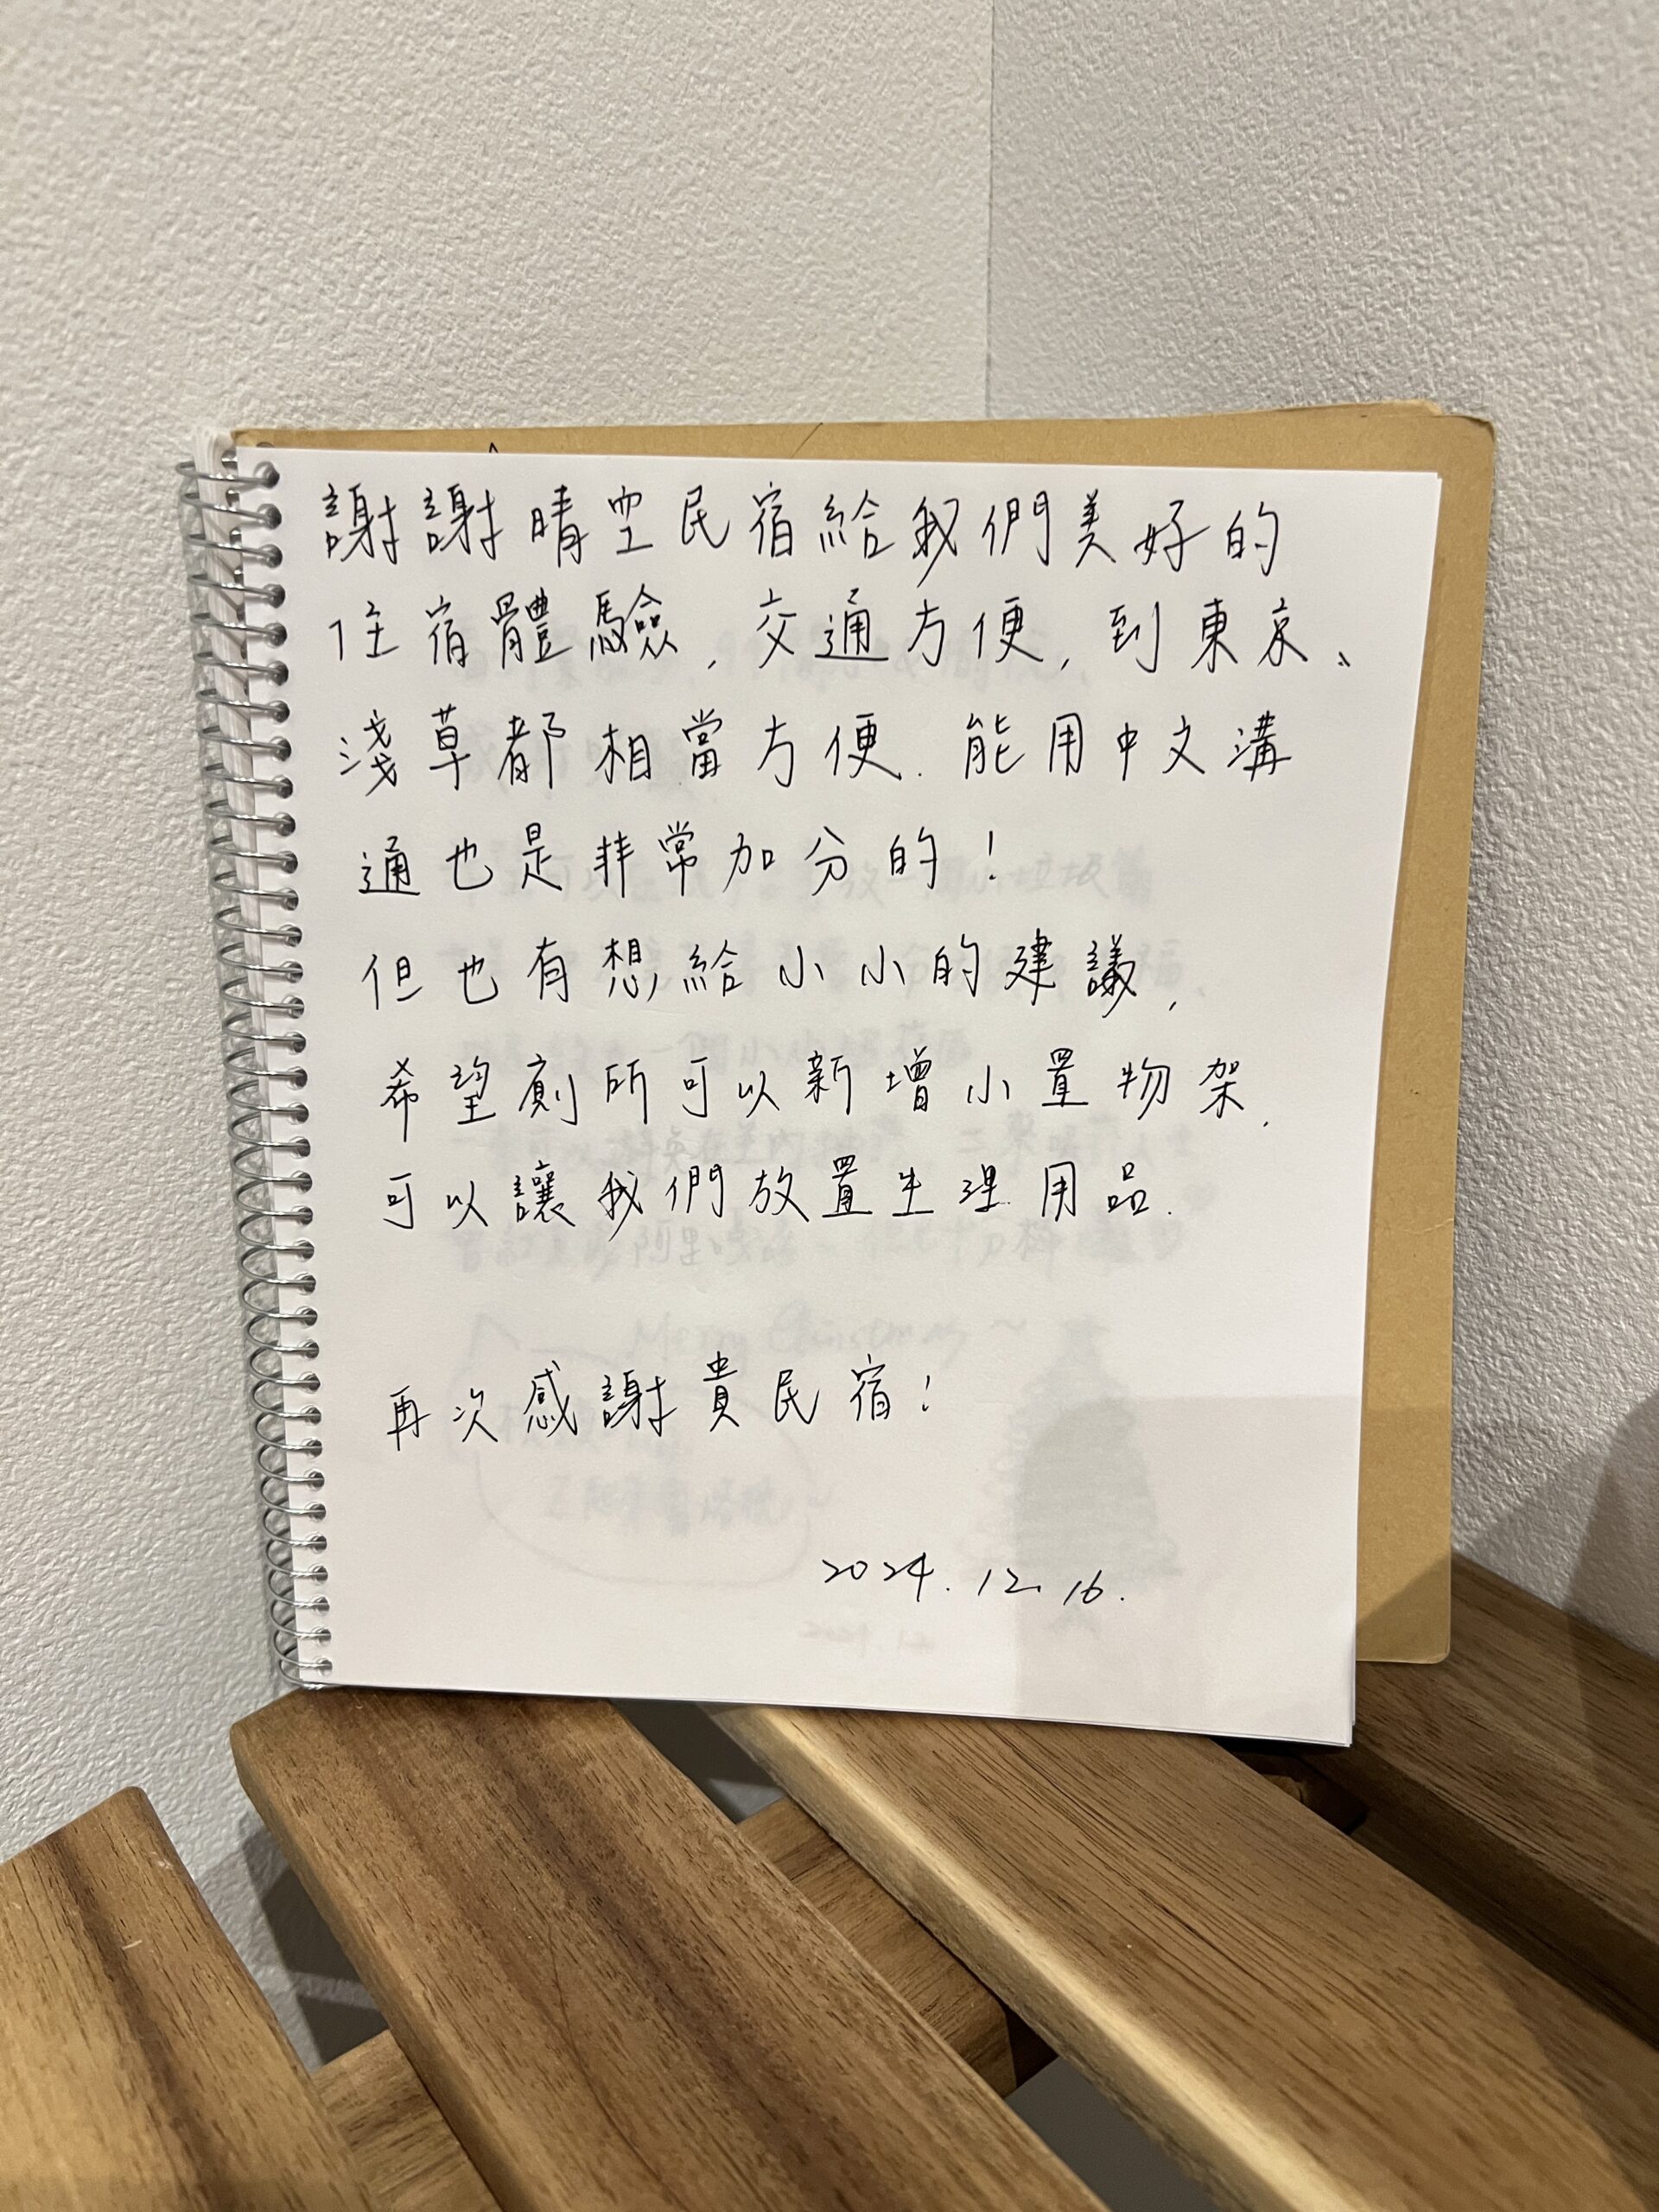 謝謝晴空民宿給我們美好的
住宿體驗,交通方便,到東京、
淺草都相當方便.能用中文溝
通也是非常加分的!
但也有想給小小的建議,
希望廁所可以新增小置物架,
可以讓我們放置生理用品.
再次感謝貴民宿!
2024.12.16.